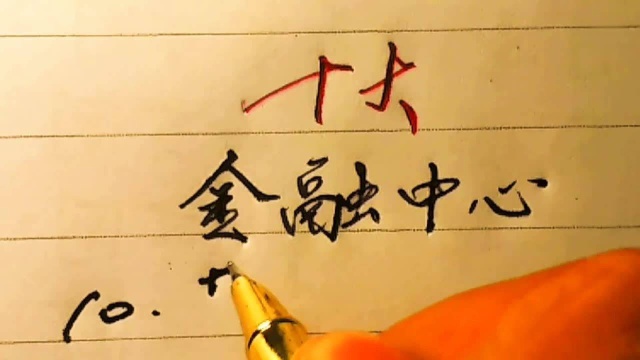 十六
金融中心
10.